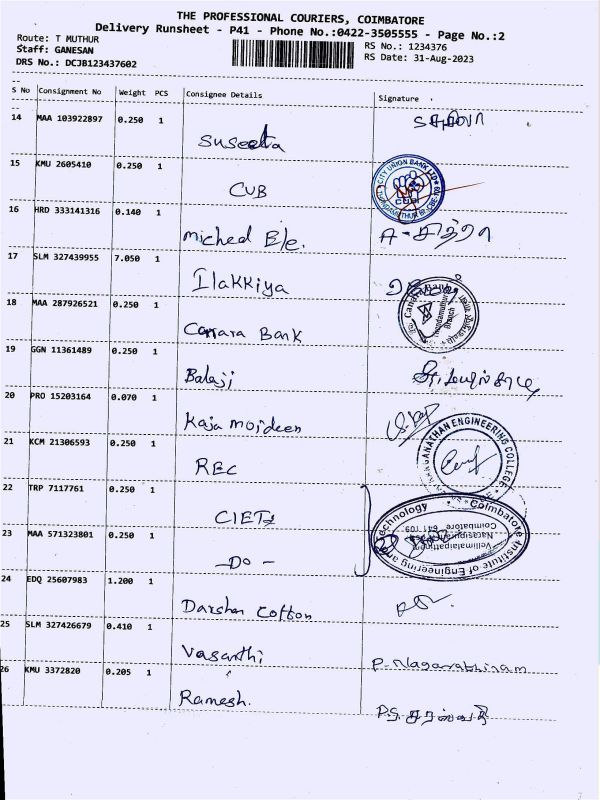 THE PROFESSIONAL COURIERS, COIMBATORE
Delivery Runsheet - P41 - Phone No.:0422-3505555 - Page No.:2
Route: T MUTHUR
RS No.: 1234376
Staff: GANESAN
RS Date: 31-Aug-2023
DRS No.: DCJB123437602
S No Consignment No Weight PCS Consignee Details Signature
14 MAA 103922897 0.250 1 Suseeta
15 KMU 2605410 0.250 1 CUB CITY UNION BANK LTD CUB
16 HRD 333141316 0.140 1 Micheal Ele. A-சித்ரா
17 SLM 327439955 7.050 1 Ilakkiya
18 MAA 287926521 0.250 1 Canara Bank Canara Bank Branch
19 GGN 11361489 0.250 1 Balaji
20 PRO 15203164 0.070 1 Kaja Moideen
21 KCM 21306593 0.250 1 REC RANGANATHAN ENGINEERING COLLEGE
22 TRP 7117761 0.250 1 CIET Coimbatore Institute of Engineering and Technology
Vellimalaipattinam
Narasipuram
Coimbatore 641 109
23 MAA 571323801 0.250 1 -DO-
24 EDQ 25607983 1.200 1 Darshan Cotton
25 SLM 327426679 0.410 1 Vasanthi P. Nagarathinam
26 KMU 3372820 0.205 1 Ramesh. P.S. சரஸ்வதி